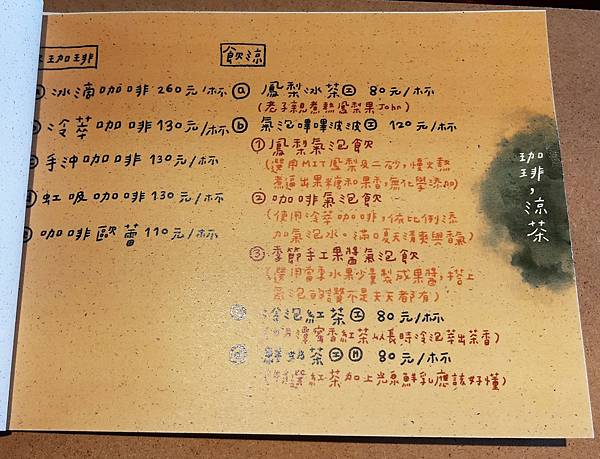 咖啡
冰滴咖啡 260元/杯
冷萃咖啡 130元/杯
手沖咖啡 130元/杯
虹吸咖啡 130元/杯
咖啡歐蕾 110元/杯
飲涼
ⓐ 鳳梨冰茶 80元/杯
(老子親煮熬鳳梨果John)
ⓑ 氣泡嗶嗶波波 120元/杯
① 鳳梨氣泡飲
(選用MIT鳳梨及二砂,慢火熬
煮逼出果糖和果香,無化學添加)
② 咖啡氣泡飲
(使用冷萃咖啡,依比例添
加氣泡水。滿口夏天清爽與香氣)
③ 季節手工果醬氣泡飲
(選用當季水果少量製成果醬,搭上
氣泡的讚不是天天都有)
冷泡紅茶 80元/杯
潭蜜香紅茶以長時冷泡萃出茶香)
鮮奶茶 Ⓗ 80元/杯
選紅茶加上光泉鮮乳應該好懂)
珈琲,涼茶